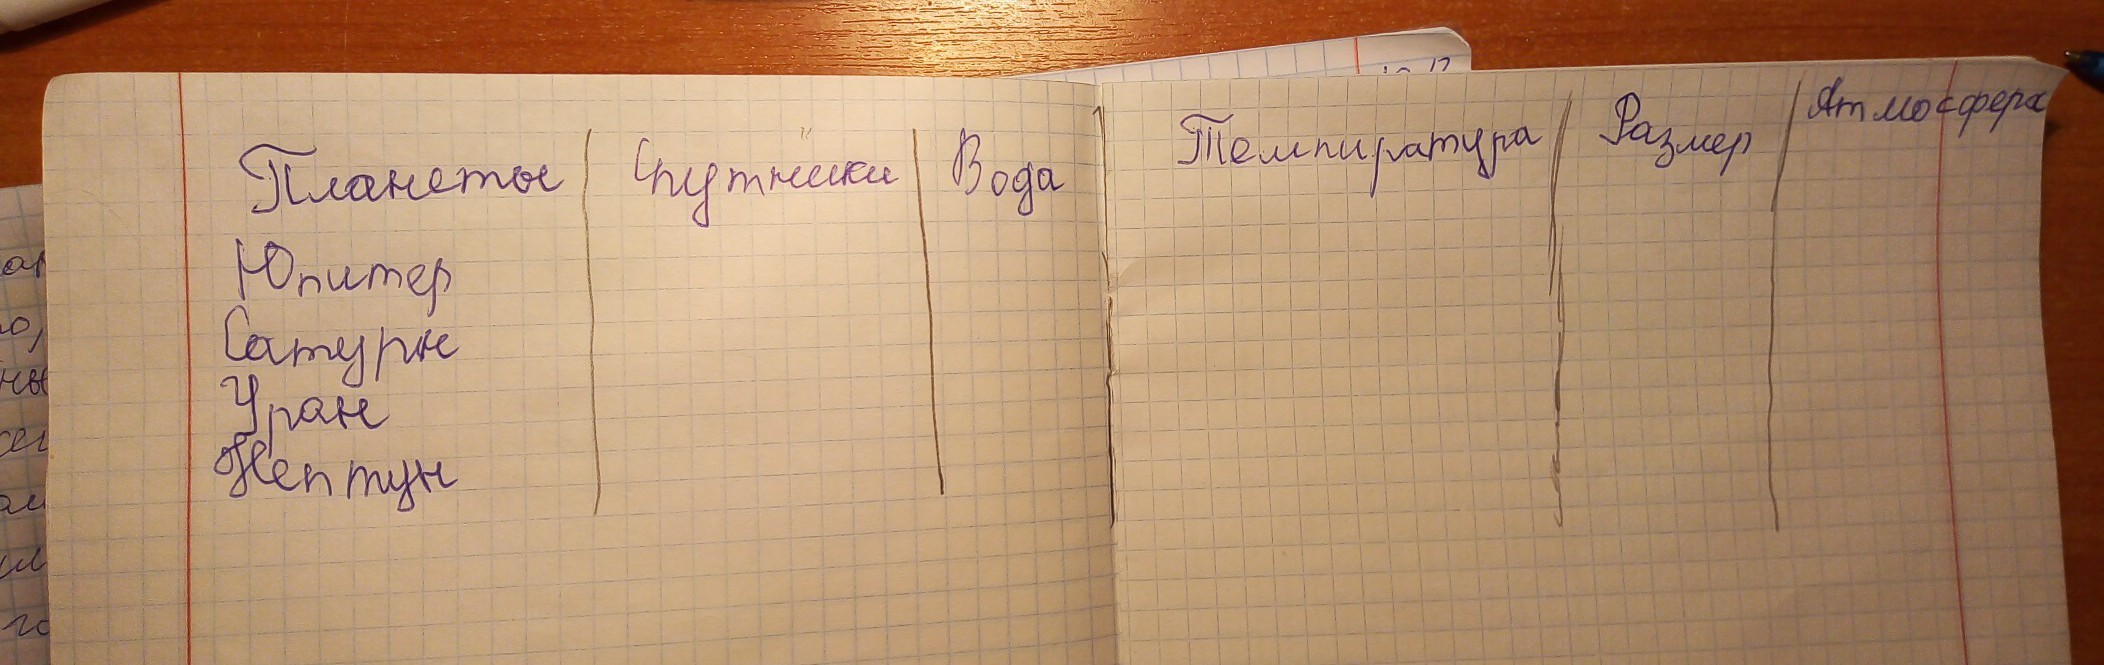 Планеты Спутники Вода Темпиратура Размер Атмосфера
Юпитер
Сатурн
Уран
Нептун